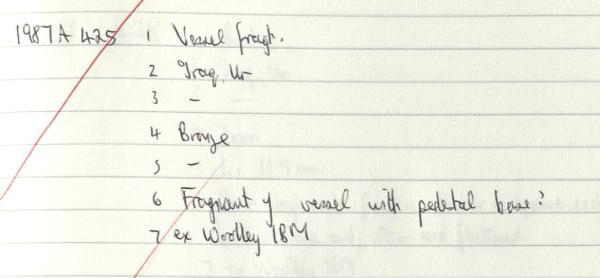 1987A 425 1 Vessel fragt.
2 Iraq, Ur
3 –
4 Bronze
5 –
6 Fragment of vessel with pedestal base?
7 ex Woolley / BM